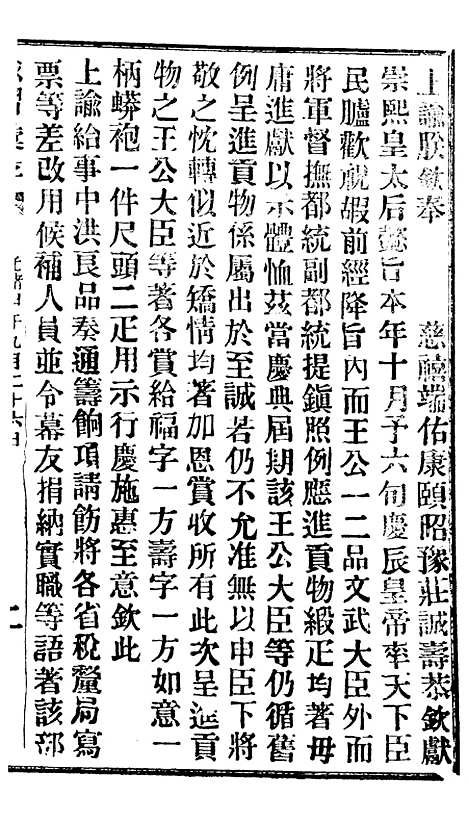 上諭朕欽奉　慈禧端佑康頤昭豫莊誠壽恭欽獻
崇熙皇太后懿旨本年十月予六旬慶辰皇帝率天下臣
民臚歡祝嘏前經降旨內而王公一二品文武大臣外而
將軍督撫都統副都統提鎮照例應進貢物緞疋均著毋
庸進獻以示體恤茲當慶典屆期該王公大臣等仍循舊
例呈進貢物係屬出於至誠若仍不允准無以申臣下將
敬之忱轉似近於矯情均著加恩賞收所有此次呈進貢
物之王公大臣等著各賞給福字一方壽字一方如意一
柄蟒袍一件尺頭二疋用示行慶施惠至意欽此
上諭給事中洪良品奏通籌餉項請飭將各省稅釐局寫
票等差改用候補人員並令幕友捐納實職等語著該部
光緒甲午九月二十六日
二